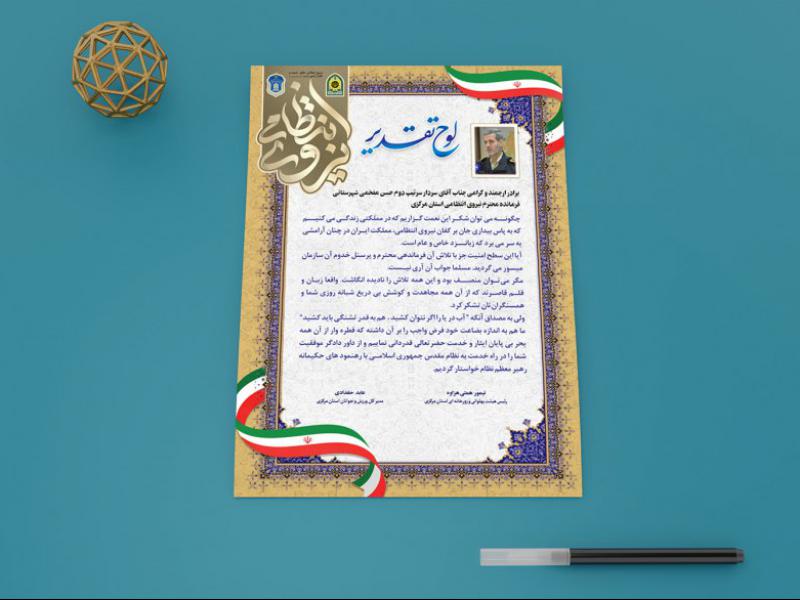 نیروی انتظامی
لوح تقدیر
برادر ارجمند و گرامی جناب آقای سردار سرتیپ دوم حسن مفخمی شهرستانی
فرمانده محترم نیروی انتظامی استان مرکزی
چگونه می توان شکر این نعمت گزاریم که در مملکتی زندگی می کنیم
که به پاس بیداری جان بر کفان نیروی انتظامی، مملکت ایران در چنان آرامشی
به سر می برد که زبانزد خاص و عام است.
آیا این سطح امنیت جز با تلاش آن فرماندهی محترم و پرسنل خدوم آن سازمان
میسور می گردید. مسلما جواب آن آری نیست.
مگر می توان منصف بود و این همه تلاش را نادیده انگاشت. واقعا زبان و
قلم قاصرند که از آن همه مجاهدت و کوشش بی دریغ شبانه روزی شما و
همسنگران تان تشکر کرد.
ولی به مصداق آنکه " آب دریا را اگر نتوان کشید ، هم به قدر تشنگی باید کشید"
ما هم به اندازه بضاعت خود فرض واجب را بر آن داشته که قطره وار از آن همه
بحر بی پایان ایثار و خدمت حضرتعالی قدردانی نماییم و از داور دادگر موفقیت
شما را در راه خدمت به نظام مقدس جمهوری اسلامی با رهنمود های حکیمانه
رهبر معظم نظام خواستار گردیم.
تیمور همتی هزاوه
رئیس هیئت پهلوانی و زورخانه ای استان مرکزی
عابد حقدادی
مدیر کل ورزش و جوانان استان مرکزی